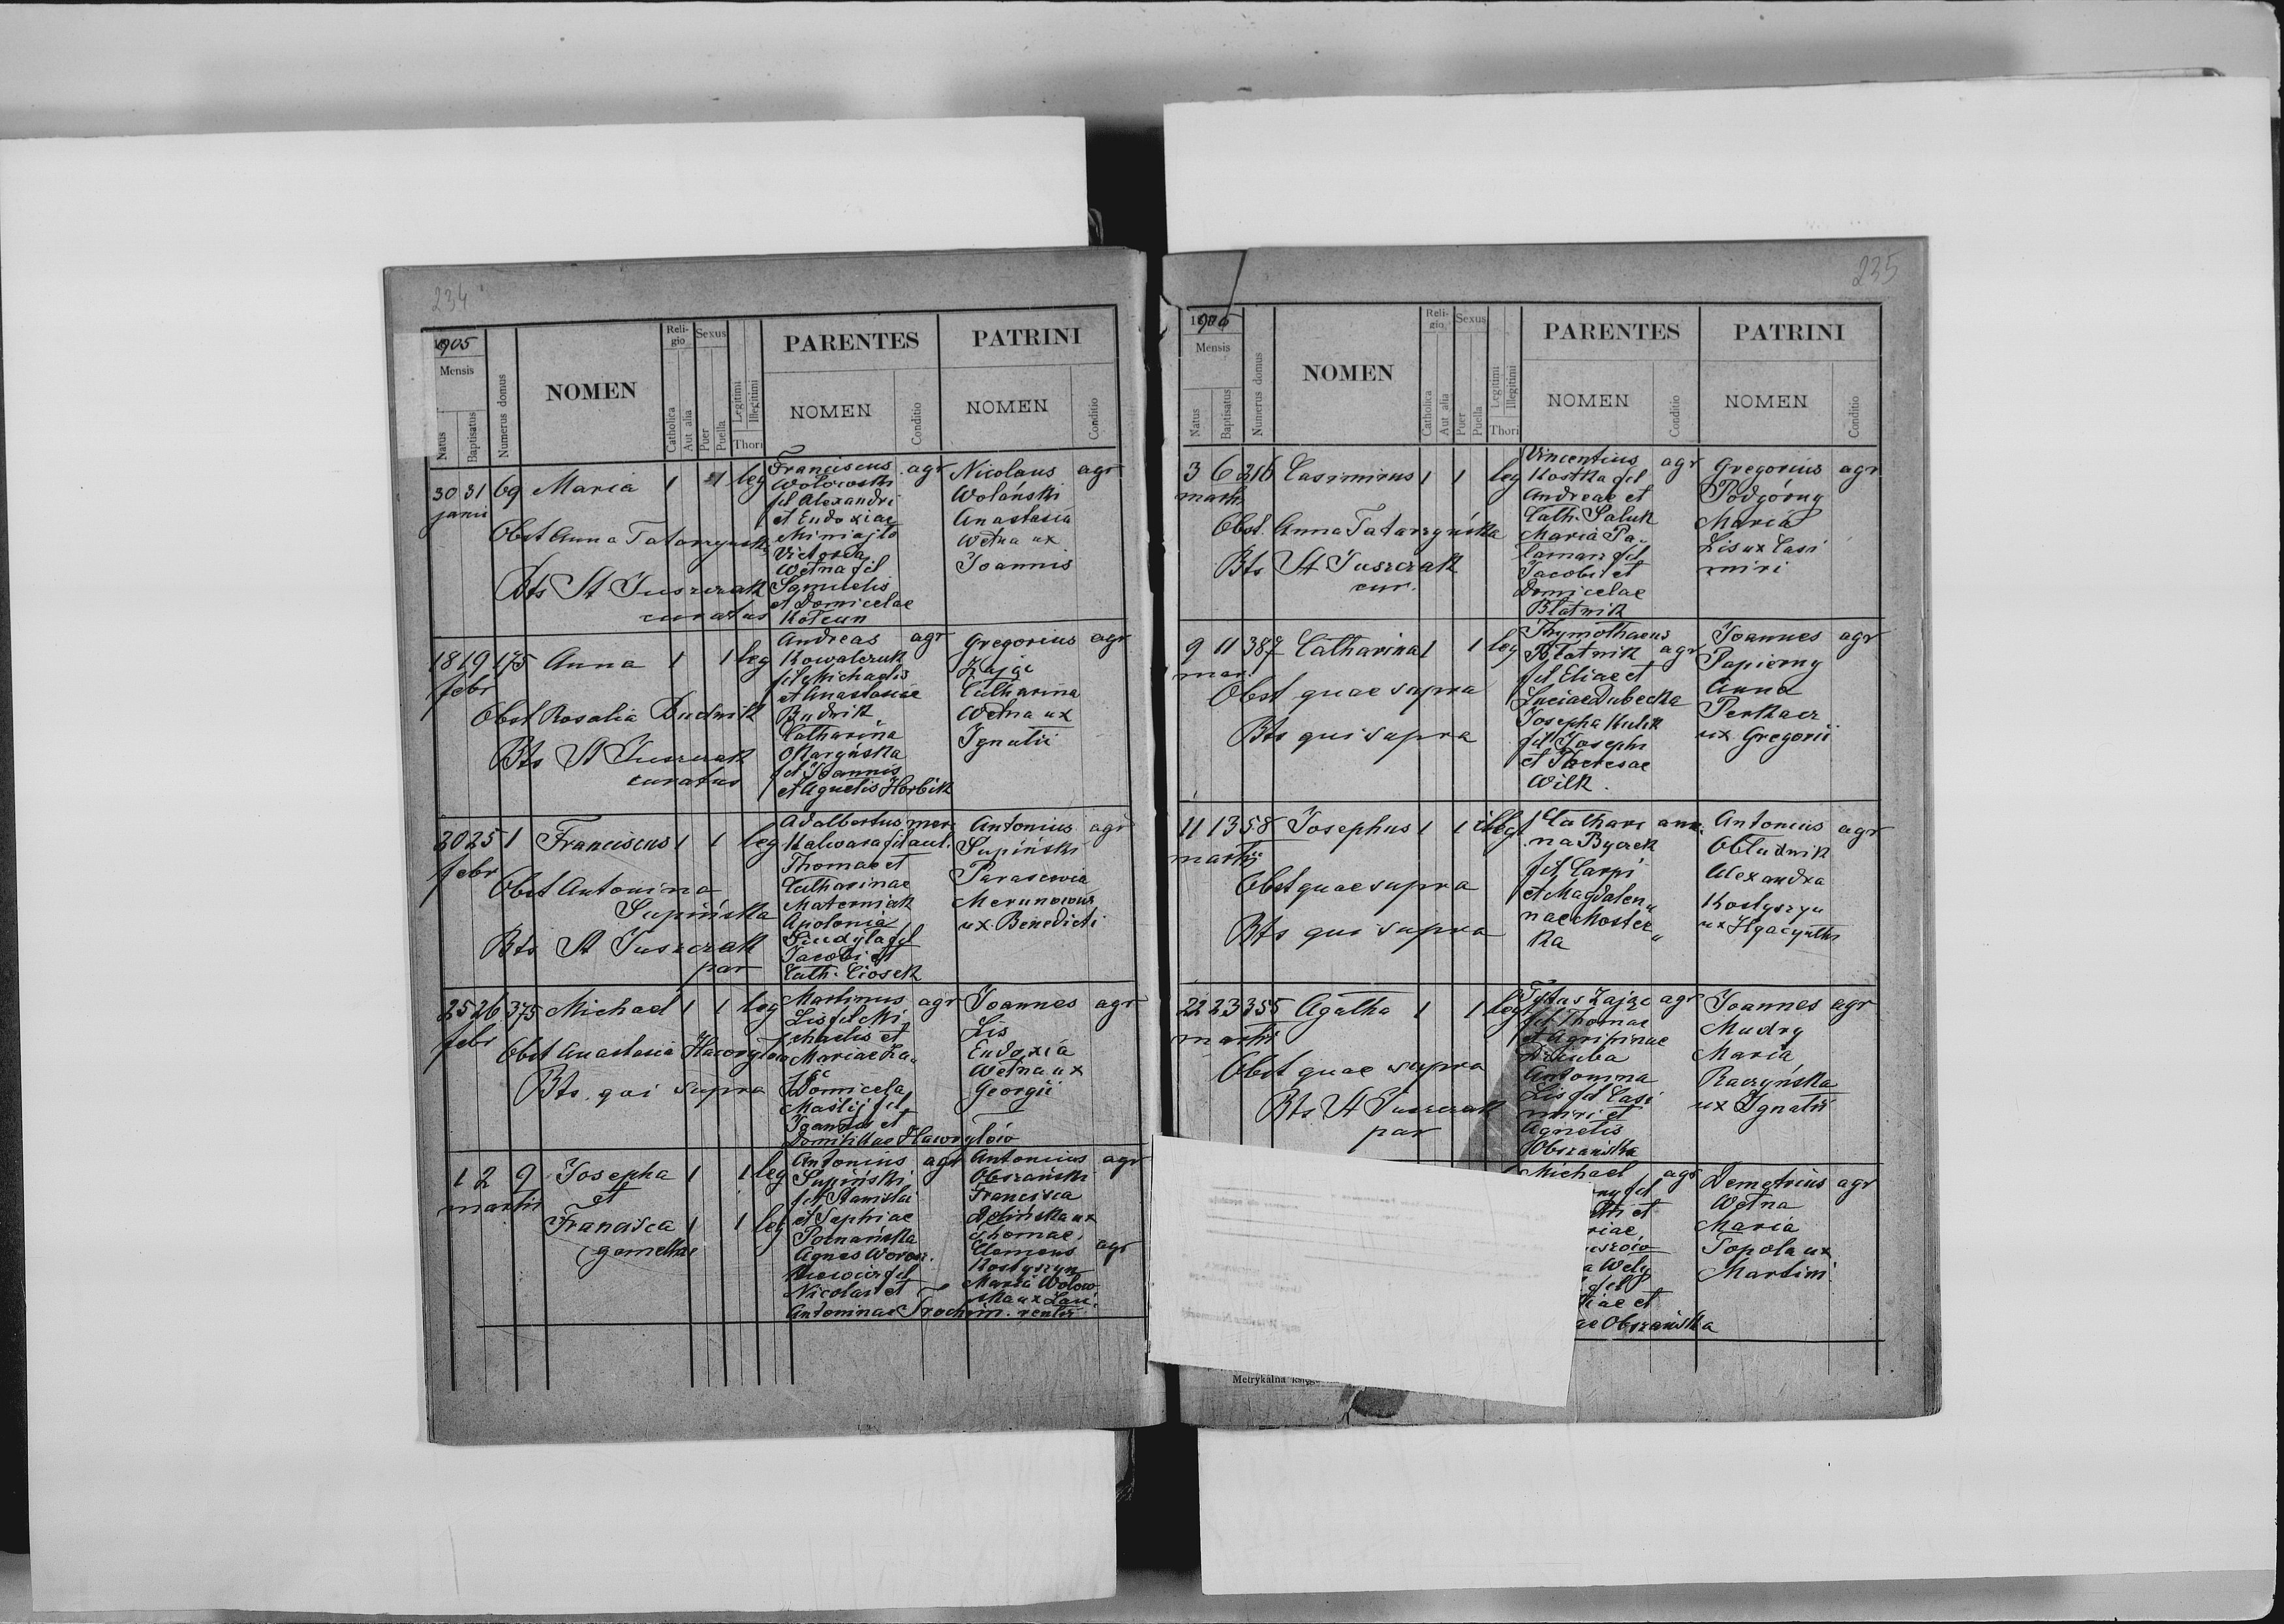 234
1905
Mensis
Natus
Baptisatus
Numerus domus
NOMEN
Reli-
gio
Catholica
Aut alia
Sexus
Puer
Puella
Legitimi
Illegitimi
Thori
PARENTES
NOMEN
Conditio
PATRINI
NOMEN
Conditio
30 31 69 Maria 1 1 leg
janii
Obst Anna Tatarzynska
Bts St Juszczak
curatus
Franciscus agr
Wołowski
fil Alexandri
et Eudoxiae
Miniajło
Victoria
Wetna fil
Samuelis
et Domicelae
Kotcun
Nicolaus agr
Wolański
Anastasia
Wetna ux
Joannis
18 19 175 Anna 1 1 leg
febr
Obst Rosalia Dudnik
Bts St Juszczak
curatus
Andreas agr
Kowalczuk
fil Michaelis
et Anastasiae
Budnik
Catharina
fil Joannis
et Agnetis Horbik
Gregorius agr
Zając
Catharina
Wetna ux
Ignatii
20 25 1 Franciscus 1 1 leg
febr
Obst Antonina
Supińska
Bts St Juszczak
par
Adalbertus mer
Kalwara fil aul.
Thomae et
Catharinae
Materniak
Apolonia
fil
Jacobi et
Cath. Ciosek
Antonius agr
Supiński
Parascevia
Merunowicz
ux Benedicti
25 26 375 Michael 1 1 leg
febr
Obst Anastasia Hawrylow
Bts qui supra
Martinus agr
Lis fil Mi
chaelis et
Mariae Za„
jąc
Domicela
Maślij fil
Ignatii et
Domitillae Hawryłów
Joannes agr
Lis
Eudoxia
Wetna ux
Georgii
1 2 9 Josepha 1 1 leg
martii et
Francisca 1 1 leg
gemellae
Antonius agr
Supiński
fil Stanislai
et Sophiae
Poznańska
Agnes
fil
Nicolai et
Antoninae Trochim.
Antonius agr
Obszański
Francisca
ux
Thomae
Clemens agr
Kostyszyn
Maria Wołow
ska ux Lau
rentii
235
1905
Mensis
Natus
Baptisatus
Numerus domus
NOMEN
Reli-
gio
Catholica
Aut alia
Sexus
Puer
Puella
Legitimi
Illegitimi
Thori
PARENTES
NOMEN
Conditio
PATRINI
NOMEN
Conditio
3 6 216 Casimirus 1 1 leg
martii
Obst. Anna Tatarzyńska
Bts St Juszczak
cur.
Vincentius agr
Kostka fil
Andreae et
Cath. Saluk
Maria Pa„
laman fil
Jacobi et
Domicelae
Blatnik
Gregorius agr
Podgórny
Maria
Lis ux Casi
miri
9 11 387 Catharina 1 1 leg
mar.
Obst quae supra
Bts qui supra
Thymothaeus
Blatnik agr
fil Eliae et
Luciae Dubecka
Josepha Kulik
fil Josephi
et Theresae
Wilk.
Joannes agr
Papierny
Anna
Perkacz
ux Gregorii
11 13 58 Josephus 1 1 illeg
martii
Obst quae supra
Bts qui supra
Cathari anc.
na Byczek
fil Carpi
et Magdalen„
nae Moster„
ka
Antonius agr
Obłudnik
Alexandra
Kostyszyn
ux Hyacynthi
22 23 355 Agatha 1 1 leg
martii
Obst quae supra
Bts St Juszczak
par
Tytus Zając agr
fil Thomae
et Agripinae
Dziuba
Antonina
Lis fil Casi
miri et
Agnetis
Obszańska
Joannes agr
Mudry
Maria
Raczyńska
ux Ignatii
Michael agr
ny fil
et
riae
a Wely
fil
iae et
ae Obszańska
Demetrius agr
Wetna
Maria
Topola ux
Martini
Metrykalna